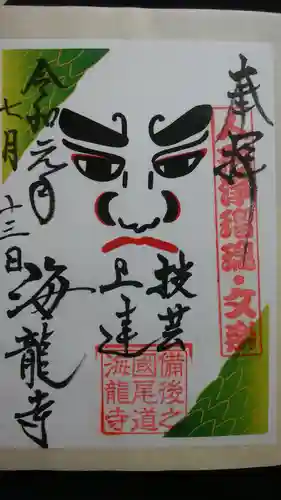 奉拝
人形浄瑠璃・文楽
技芸
上達
令和元年
七月
十三日
海龍寺
備後之
國尾道
海龍寺